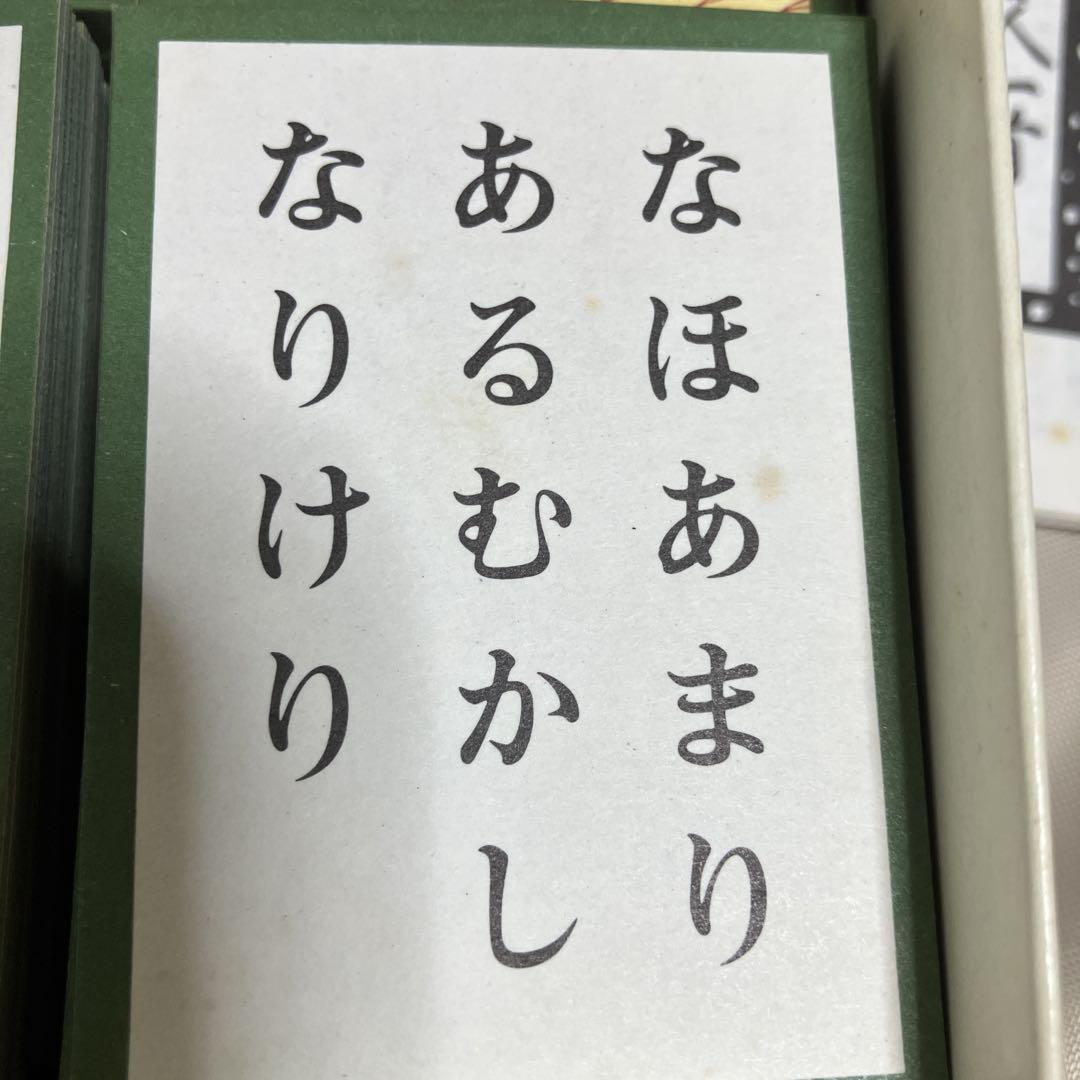 なほあまり
あるむかし
なりけり